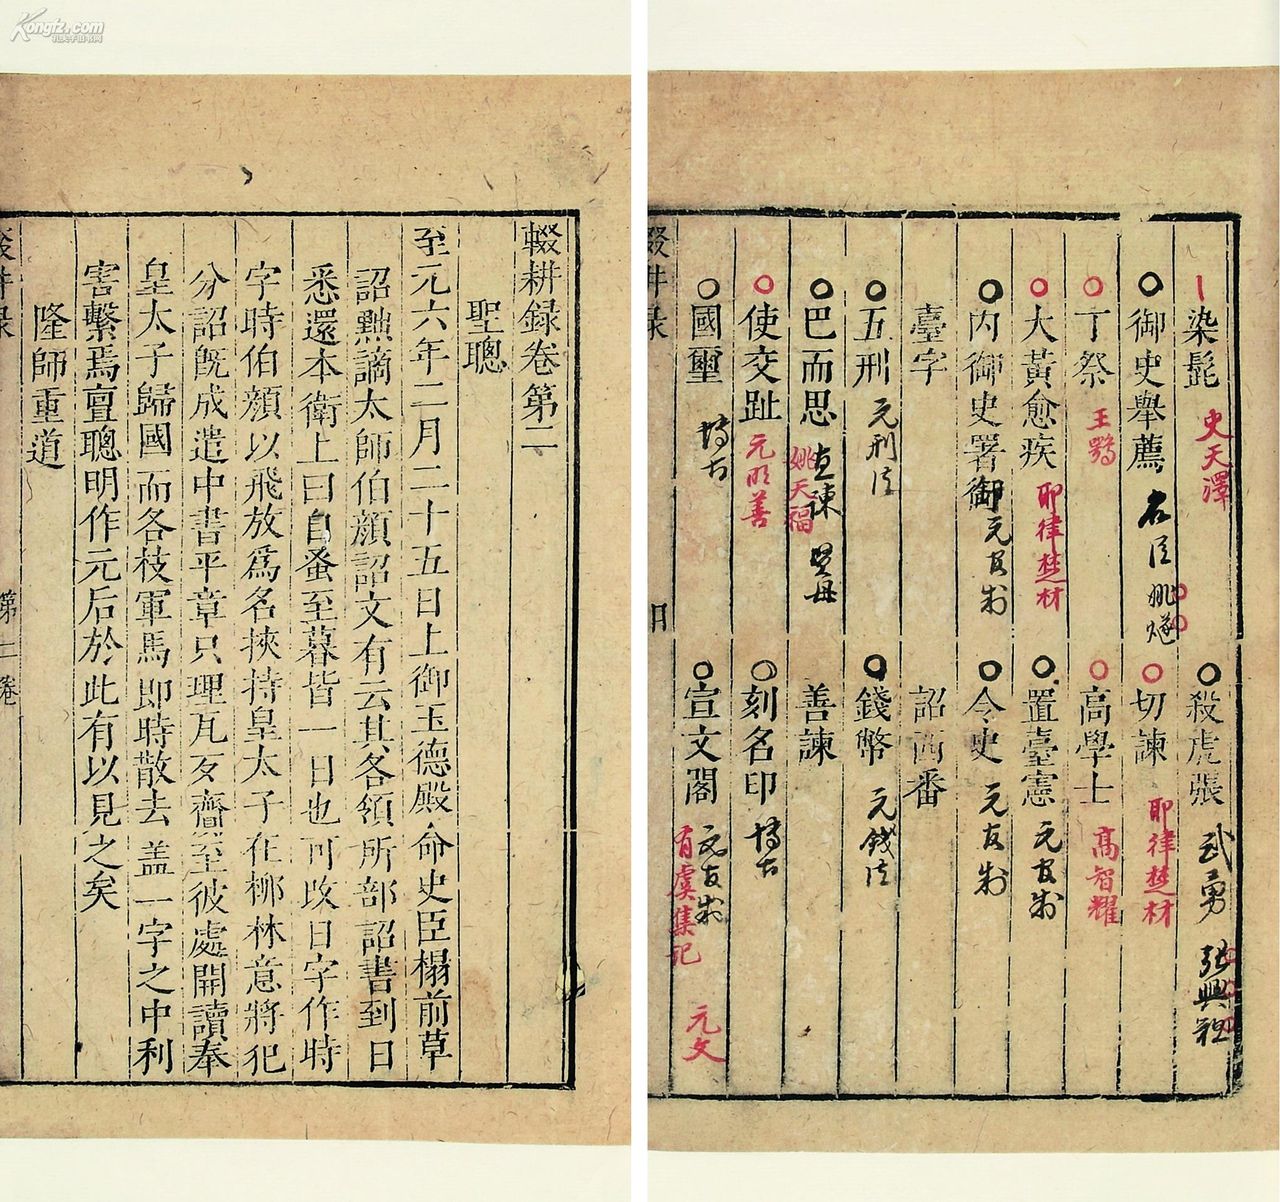 Kongfz.com
孔夫子旧书网
染髭 史天澤
殺虎張 武勇 張興祖
御史舉薦 名臣 姚燧
切諫 耶律楚材
丁祭 王鶚
高學士 高智耀
大黃愈疾 耶律楚材
置臺憲 元百官制
内御史署御
令史
臺字
詔西番
五刑 元刑法
錢幣 元錢法
巴而思 直諫 姚天福
善諫
使交趾 元明善
刻名印 博古
國璽 博古
宣文閣 有虞集記 元文
輟耕録卷第二
聖聰
至元六年二月二十五日上御玉德殿命史臣榻前草
詔黜謫太師伯顏詔文有云其各領所部詔書到日
悉還本衛上曰自蚤至暮皆一日也可改日字作時
字時伯顏以飛放爲名挾持皇太子在栁林意將犯
分詔旣成遣中書平章只理瓦歹齎至彼處開讀奉
皇太子歸國而各枝軍馬即時散去盖一字之中利
害繫焉亶聰明作元后於此有以見之矣
隆師重道
第二卷